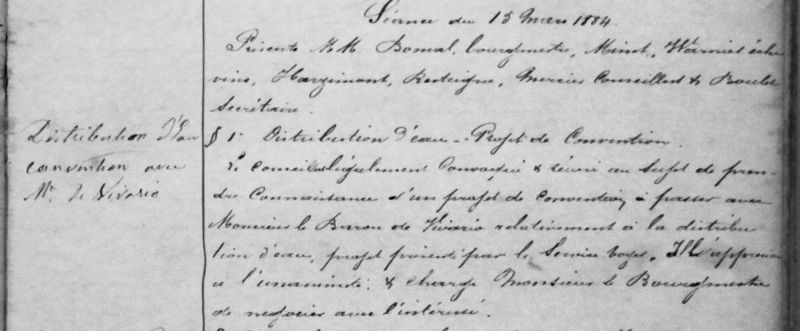 Séance du 15 Mars 1884.
Présents M.M. Bomal, bourgmestre, Minet, Warnier éche
vins, Harzimont, Bodeigne, Mercier Conseillers & Boulet
Secrétaire.
Distribution d'Eau
convention avec
Mr. de Vivario
§ 1er Distribution d'eau - Projet de Convention.
Le conseil légalement Convoqué & réuni au sujet de pren-
dre Connaissance d'un projet de convention, à passer avec
Monsieur le Baron de Vivario relativement à la distribu
tion d'eau, projet présenté par le Service voyer. Il l'approuve
a l'unanimité; & charge Monsieur le Bourgmestre
de négocier avec l'intéressé.